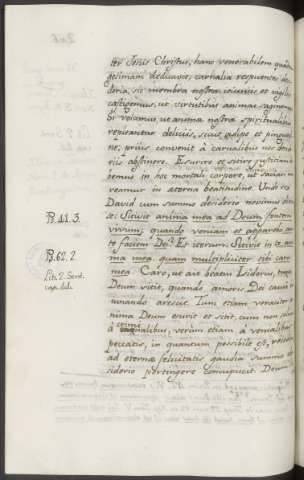 ter Jesus Christus, hanc venerabilem quadra
gesimam dedicavit, carnalia respuentes desi
deria, sic membra nostra jejuniis, et vigiliis
castigemus, ut virtutibus animae
valeamus, ut anima nostra spiritualibus
repleatur deliciis, sicut adipe et pinguedi
ne; prius convenit à carnalibus nos deside
riis abstinere. Esurire et sitire justitiam
debemus in hoc mortali corpore, ut saciari me
reamur in aeterna beatitudine. Unde et
David cum summo desiderio novimus dixis
se: Sitivit anima mea ad Deum fontem
vivum; quando veniam et apparebo an
te faciem Dei? Et iterum: Sitivit in te ani
ma mea quam multipliciter tibi caro
mea. Caro, ut ait beatus Isidorus, tunc
Deum sitit, quando, amore Dei caro
nando arescit. Tum etiam veraciter a
nima Deum esurit et sitit, cum non solum
à crimi
nalibus, verùm etiam à venialibus
peccatis, in quantum possibile est,
ad eternae felicitatis gaudia summo de
siderio pertingere concupiscit. Deum
Ps. 41. 3.
Ps. 62. 2.
Lib. 2. Sent.